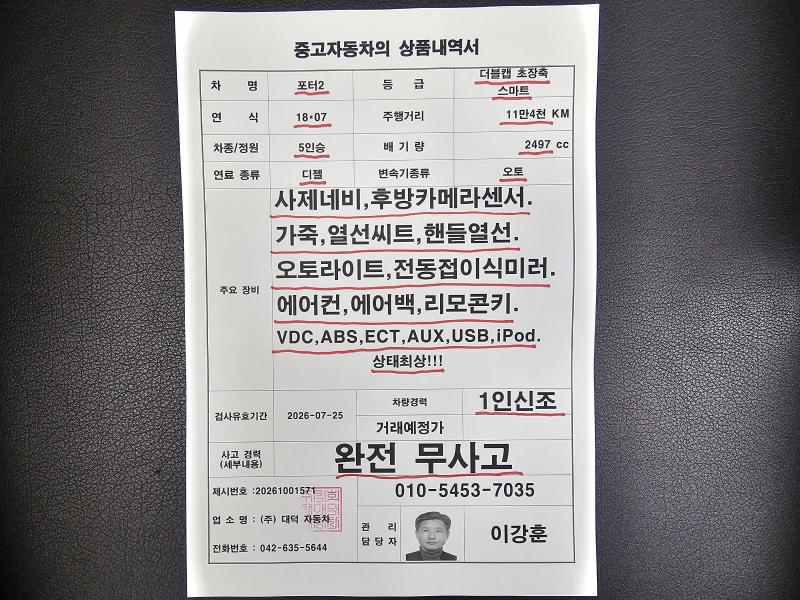 중고자동차의 상품내역서
차 명 포터2 등 급 더블캡 초장축 스마트
연 식 18*07 주행거리 11만4천 KM
차종/정원 5인승 배 기 량 2497 cc
연료 종류 디젤 변속기종류 오토
주요 장비
사제네비,후방카메라센서.
가죽,열선씨트,핸들열선.
오토라이트,전동접이식미러.
에어컨,에어백,리모콘키.
VDC,ABS,ECT,AUX,USB,iPod.
상태최상!!!
검사유효기간 2026-07-25 차량경력 1인신조
거래예정가
사고 경력 (세부내용) 완전 무사고
제시번호 :20261001571 010-5453-7035
업 소 명 : (주) 대덕 자동차
관 리 담 당 자 이강훈
전화번호 : 042-635-5644